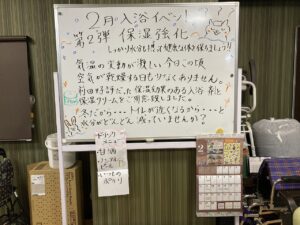 2月入浴イベント!
第2弾 保湿強化
しっかり水分も摂って健康な体を保ちましょう!!
気温の変動が激しい今日この頃
空気が乾燥する日も少なくありません。
前回好評だった保湿効果のある入浴剤と
保湿クリームをご用意致しました。
冬だから… トイレが近くなるから… と
水分がどんどん減っていませんか?
ドリンク
メニュー
甘酒
いつもの
ポカリ
2